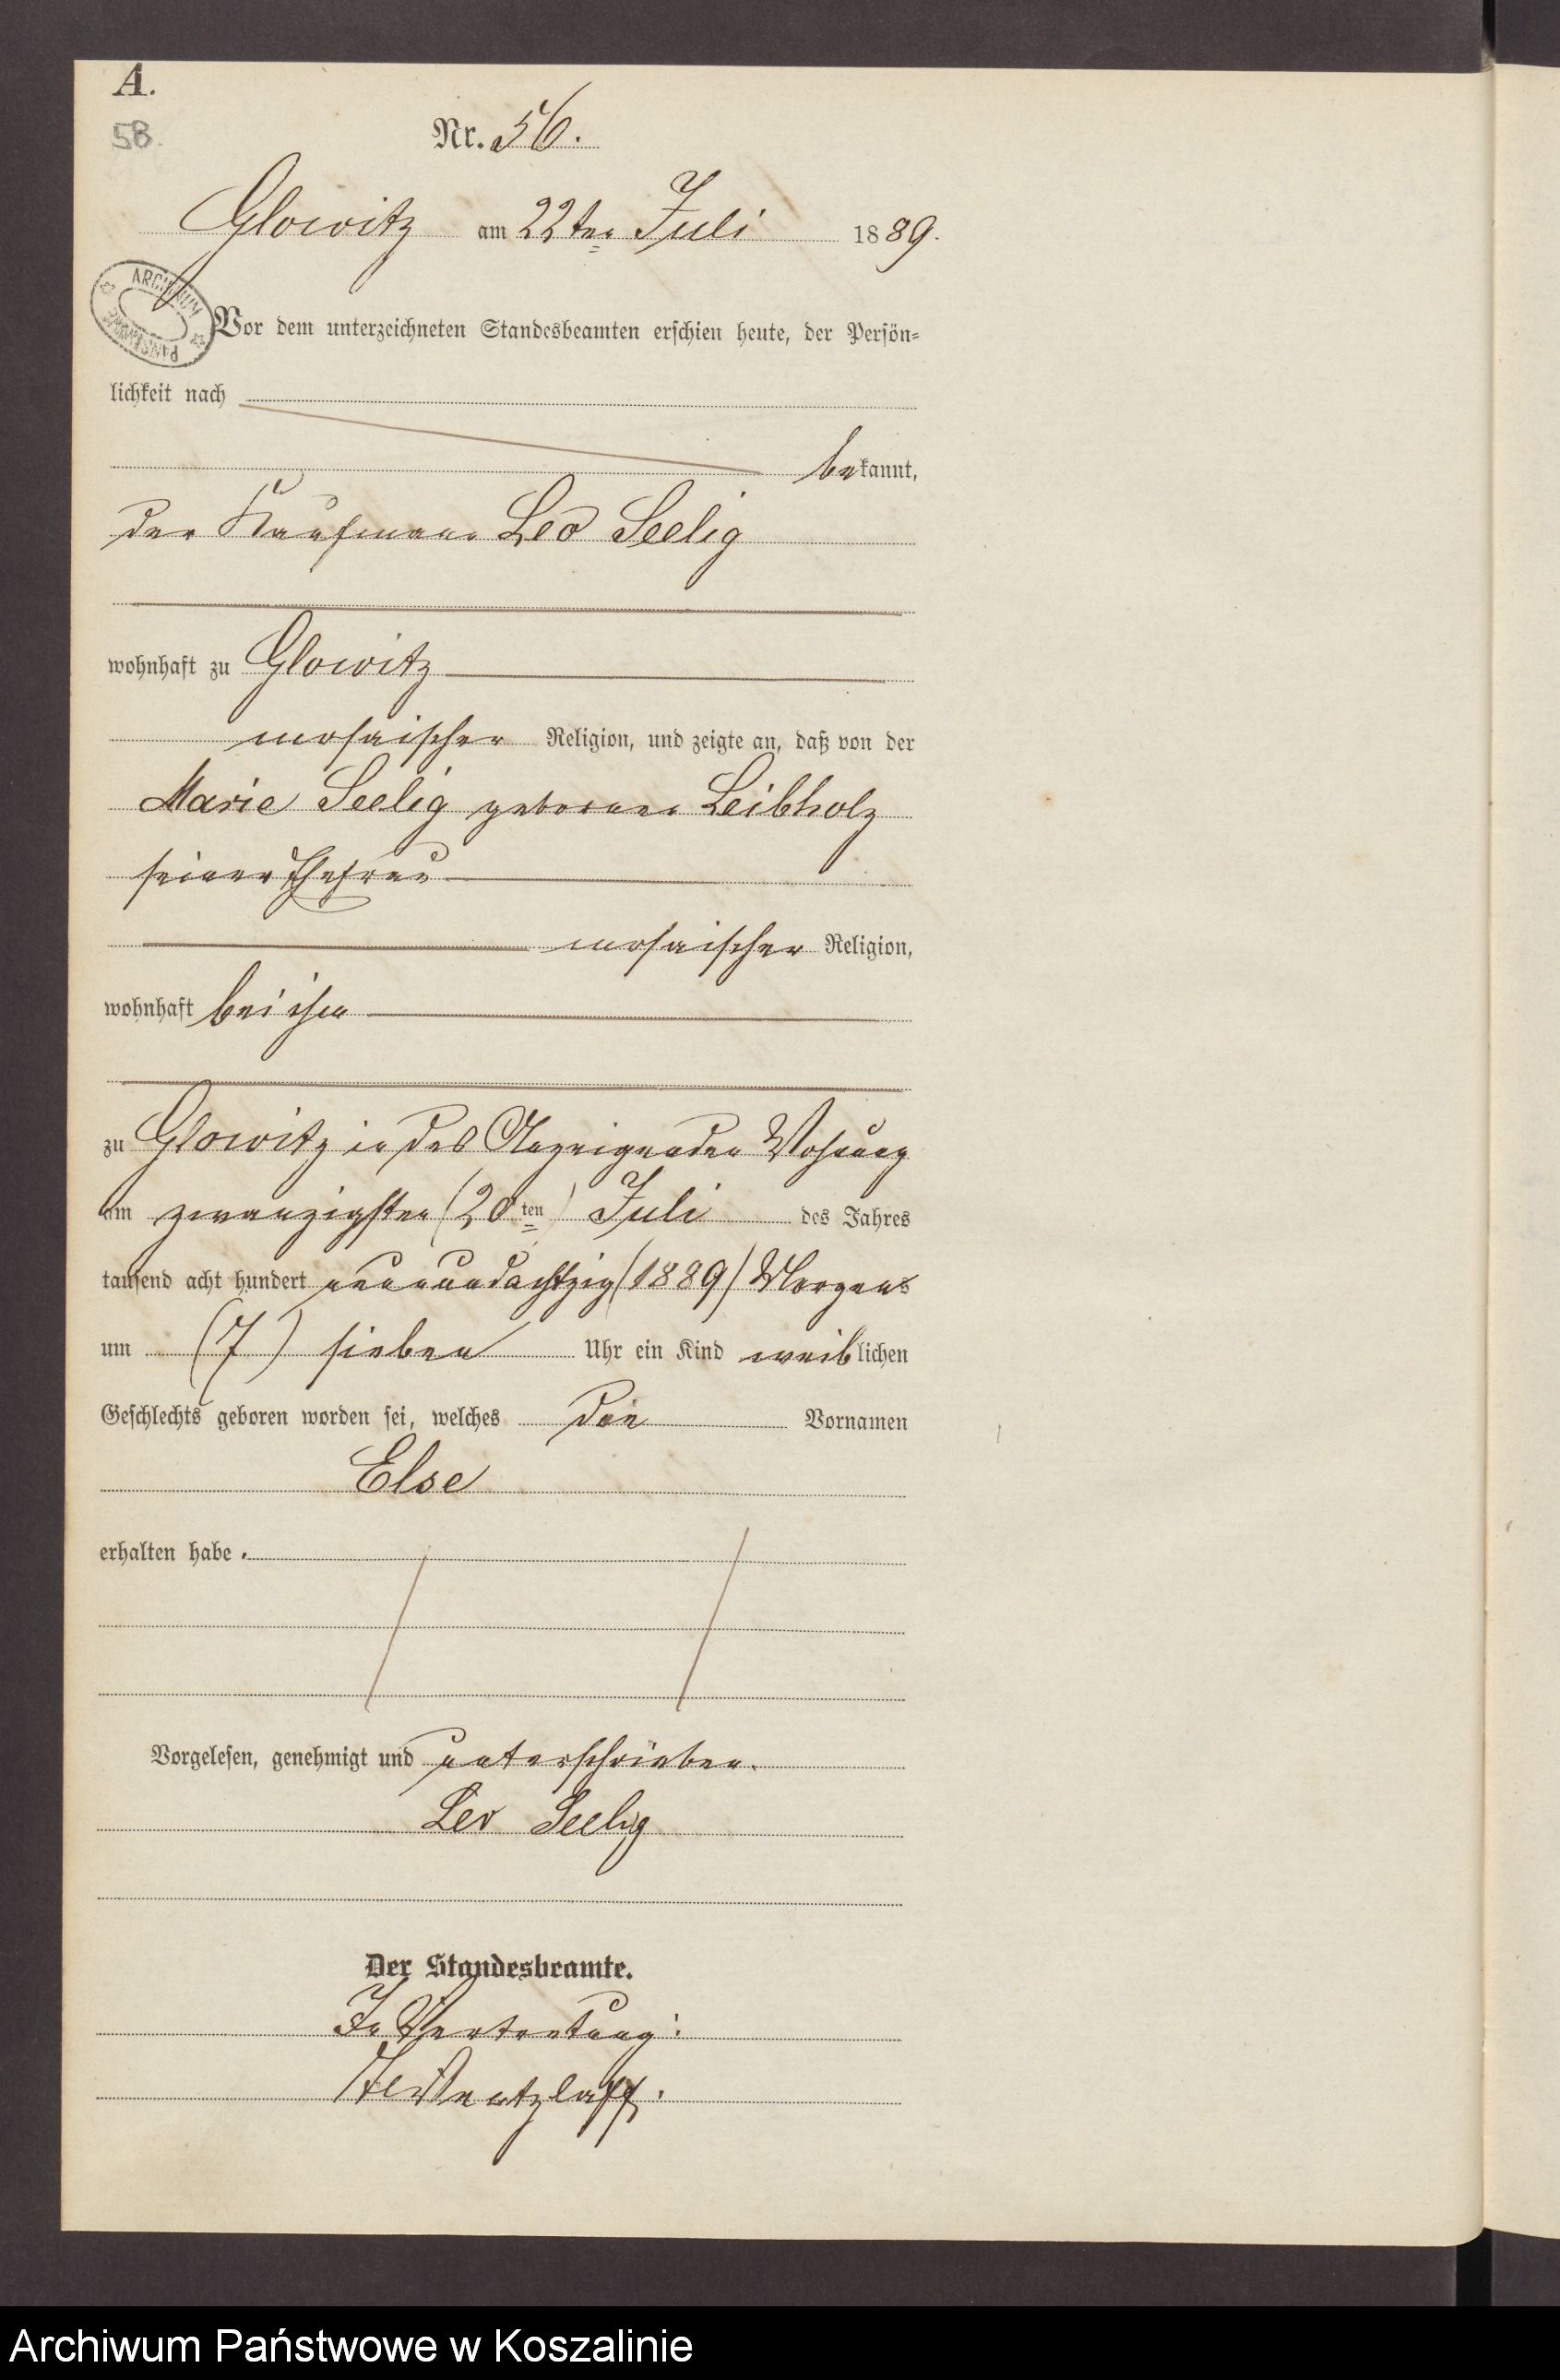 A.
58.
Nr. 56.
Glowitz am 22ten Juli 1889.
ARCHIWUM
PAŃSTWOWE
Vor dem unterzeichneten Standesbeamten erschien heute, der Persön-
lichkeit nach
bekannt,
der Kaufmann Leo Seelig
wohnhaft zu Glowitz
mosaischer Religion, und zeigte an, daß von der
Marie Seelig geborenen Leibholz
seiner Ehefrau
mosaischer Religion,
wohnhaft bei ihm
zu Glowitz in des Anzeigenden Wohnung
am zwanzigsten (20ten) Juli des Jahres
tausend acht hundert neunundachtzig (1889) Morgens
um (7) sieben Uhr ein Kind weiblichen
Geschlechts geboren worden sei, welches die Vornamen
Else
erhalten habe.
Vorgelesen, genehmigt und unterschrieben.
Leo Seelig
Der Standesbeamte.
In Vertretung:
Archiwum Państwowe w Koszalinie